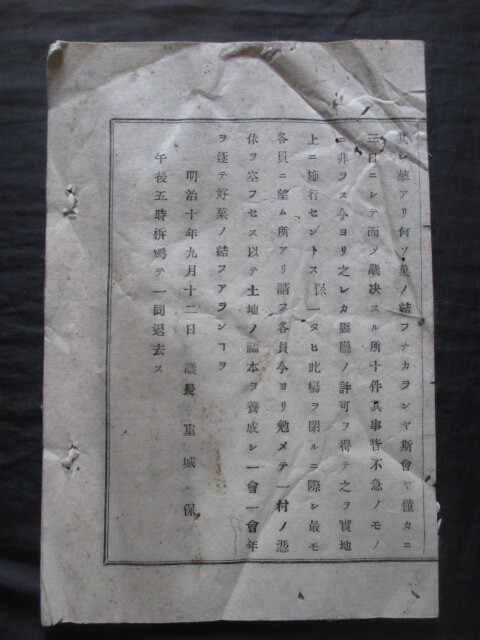 其レ華アリ何ソ菓ノ結フナカランヤ斯會ヤ僅カニ
三日ニシテ而メ議決スル所十件其事皆不急ノモノ
ニ非ラス今ヨリ之レカ縣廳ノ許可ヲ得テ之ヲ實地
上ニ施行セントス保一タヒ此場ヲ閉ルニ際シ最モ
各員ニ望ム所アリ請フ各員今ヨリ勉メテ一村ノ憑
依ヲ空フセス以テ土地ノ福本ヲ養成シ一會一會年
ヲ逐テ好菓ノ結フアランヿヲ
明治十年九月十二日 議長 重城 保
午後五時柝鳴テ一同退去ス